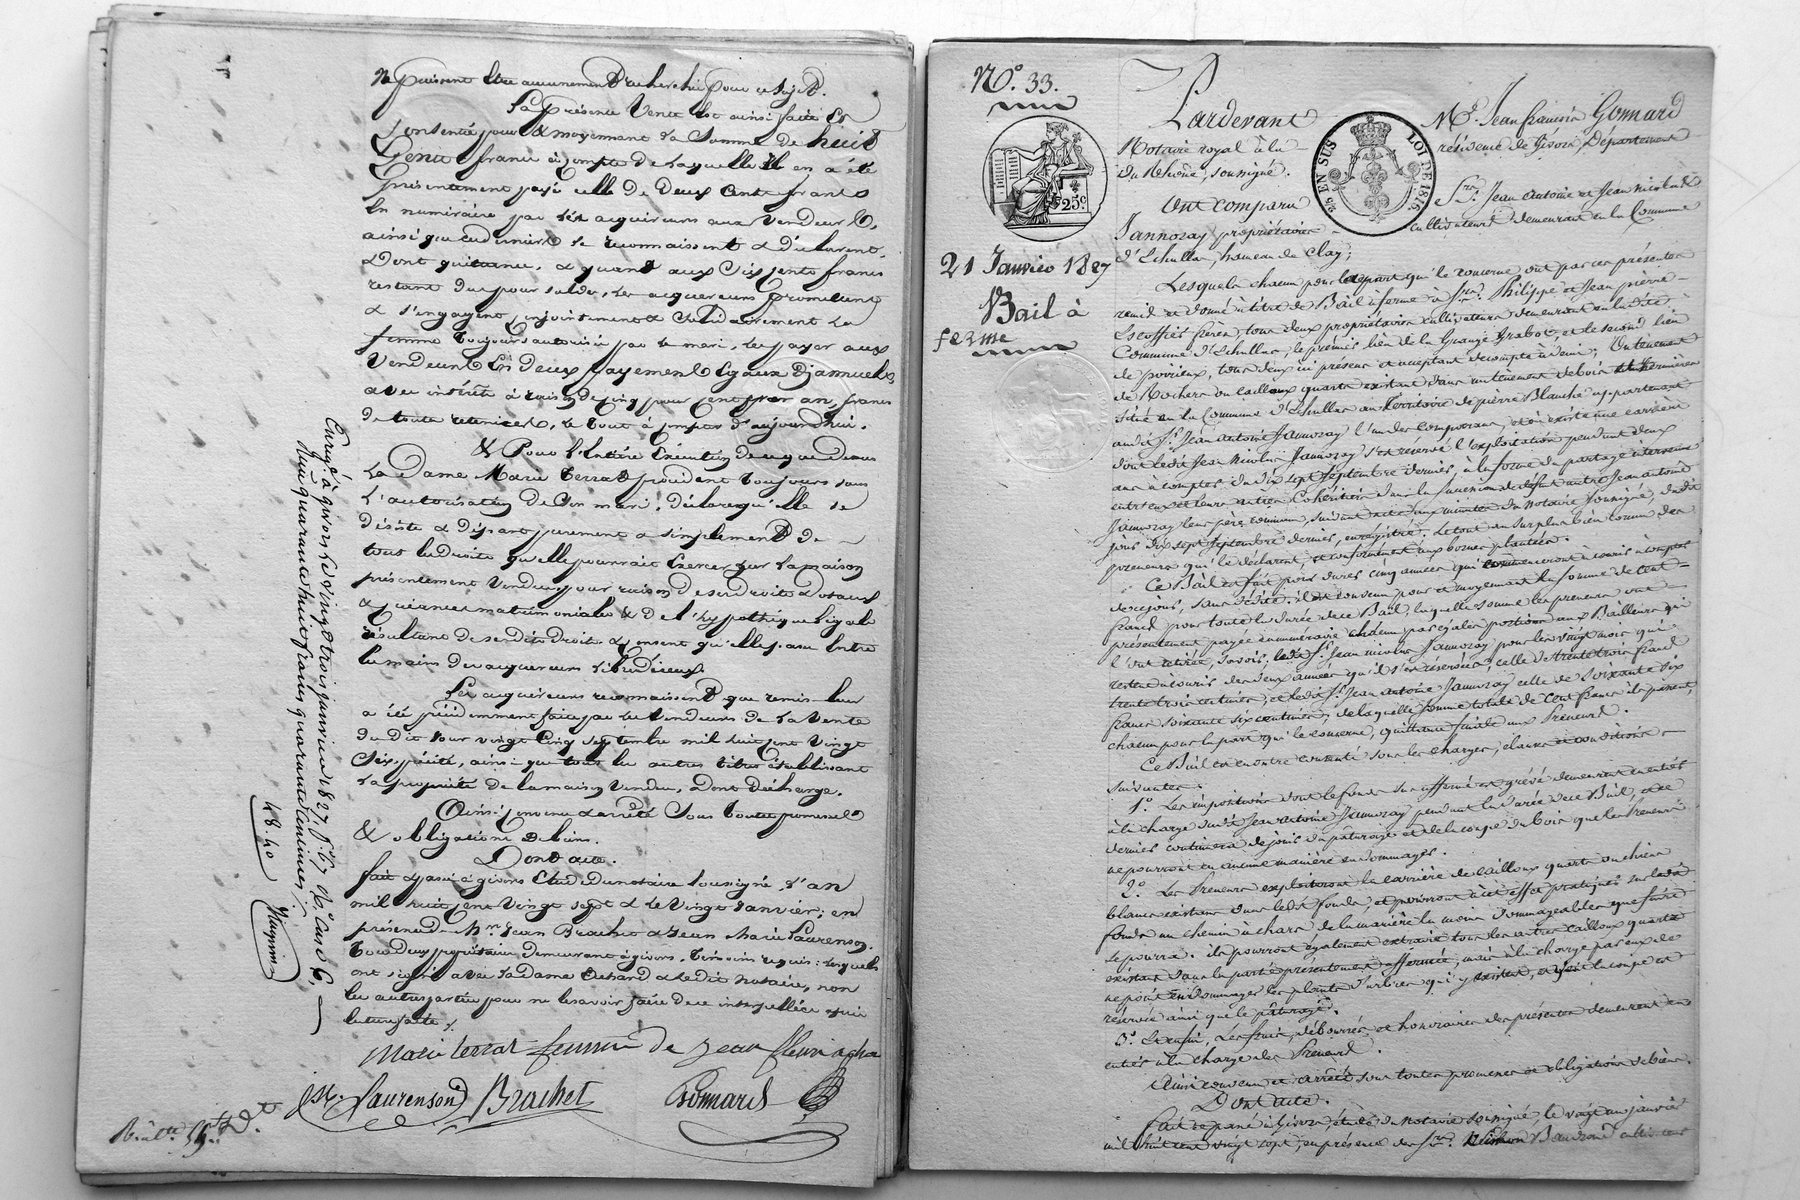 ne puissent être aucunement recherchés pour ce sujet.
La présente Vente est ainsi faite Et
Consentie pour & moyennant la Somme de huit
Cents francs à compte de laquelle il en a été
présentement payé celle de Deux Cents francs
En numéraire par les acquéreurs aux Vendeurs,
ainsi que ces derniers le reconnaissent & déclarent,
Dont quittance, & quant aux Six cents francs
restant dus pour solde, les acquéreurs promettent
& s'engagent conjointement & Solidairement la
femme toujours autorisée par le mari, les payer aux
Vendeurs En Deux payements Egaux & annuels,
avec intérêts à raison de cinq pour Cent par an, francs
de toute retenue, le tout à compter d'aujourd'hui.
& Pour l'Entière Exécution de ce que dessus
La Dame Marie Terrat procédant toujours sous
l'autorisation de Son mari, déclare qu'elle se
désiste & départ purement & simplement De
tous les droits qu'elle pourrait Exercer sur la maison
présentement Vendue pour raison de ses droits dotaux
& créances matrimoniales & De l'hypothèque légale
résultant de ses dits droits & consent qu'elle passe Entre
les mains des acquéreurs
Les acquéreurs reconnaissent que remise leur
a été précédemment faite par les Vendeurs de la Vente
du dit jour vingt Cinq septembre mil huit cent Vingt
Six, précité, ainsi que tous les autres titres établissant
la propriété de la maison Vendue, Dont Décharge.
Ainsi Convenu & arrêté Sous toutes promesses
& obligations De biens.
Dont acte.
fait & passé à givors Etude du notaire Soussigné, l'an
mil huit cent Vingt sept & le vingt Janvier; en
présence de Mrs. Jean Brachet & Jean Marie Laurenson,
tous deux propriétaires Demeurant à givors, témoins requis: lesquels
ont signé avec la Dame & le dit notaire, non
les autres parties pour ne le savoir faire de ce interpellées après
lecture faite.
Marie terrat femme de jean
JM. Laurenson Brachet Gonnard
Enreg.é à givors le vingt trois janvier 1827, f.o
Reçu quarante huit francs quarante Centimes
48.40
No. 33.
25c.
25 EN SUS
LOI DE 1816
21 Janvier 1827
Bail à
ferme
Pardevant Me. Jean françois Gonnard
Notaire royal à la résidence de Givors, Département
du Rhône, soussigné.
Ont comparu Srs. Jean Antoine et Jean Nicolas
Jannozay propriétaires cultivateurs demeurant en la Commune
d'Echallas, hameau du Clay;
Lesquels chacun pour la part qui le concerne ont par ces présentes
remis et donné à titre de Bail à ferme à Srs. Philippe et Jean pierre
Escoffier frères, tous deux propriétaires cultivateurs demeurant en la dite
Commune d'Echallas, le premier lieu de la Grange Trabot, et le second lieu
de poirieux, tous deux ici présens et acceptant de compte à demi; Un tenement
de Rochers ou cailloux quartz existant dans un tènement de bois
situé en la Commune d'Echallas au Territoire de pierre Blanche appartenant
audit Sr. Jean Antoine Jannozay l'un des comparans, et où existe une carrière
dont ledit Jean Nicolas Jannozay s'est réservé l'exploitation pendant deux
ans à compter du dix sept septembre dernier, à la forme du partage intervenu
entr'eux et leurs autres Cohéritiers dans la succession de défunt autre Jean Antoine
Jannozay leur père commun, suivant acte aux minutes du Notaire soussigné, du dit
jour dix sept septembre dernier, enregistré. Le tout au surplus bien connu des
preneurs qui le déclarent, et conformément aux bornes plantées.
Ce Bail est fait pour durer cinq années qui commenceront à courir à compter
de ce jour, sans dédite. il est convenu pour et moyennant la somme de cent
francs pour toute la durée de ce Bail, laquelle somme les preneurs ont
présentement payée en numéraire chacun par égales portions aux Bailleurs qui
l'ont retirée, savoir, ledit Sr. Jean Nicolas Jannozay pour les vingt mois qui
restent à courir des deux années qu'il s'est réservées, celle de trente trois francs
trente trois centimes, et ledit Sr. Jean Antoine Jannozay celle de soixante six
francs soixante six centimes, de laquelle somme totale de Cent francs ils passent,
chacun pour la part qui le concerne, quittance finale aux Preneurs.
Ce Bail est en outre consenti sous les charges, clauses et conditions
suivantes.
1o. Les impositions dont le fonds sus affermé est grévé demeurent en entier
à la charge dudit Jean Antoine Jannozay pendant la durée de ce Bail, et ce
dernier continuera de jouir du pâturage et de la coupe du bois que les Preneurs
ne pourront en aucune manière endommager.
2o. Les Preneurs exploiteront la carrière de cailloux quartz ou chien
blanc existant dans ledit fonds, et pourront à cet effet pratiquer sur ledit
fonds un chemin à chars de la manière la moins dommageable que faire
se pourra. ils pourront également extraire tous les autres cailloux quartz
existant dans la partie présentement affermée, mais à la charge par eux de
ne point endommager les plants d'arbres qui y existent, et dont la coupe est
réservée ainsi que le pâturage.
3o. Et enfin, Les frais, déboursés et honoraires des présentes demeurent en
entier à la charge des Preneurs.
Ainsi convenu et arrêté sous toutes promesses et obligations de biens.
Dont acte.
Fait et passé à Givors, étude du Notaire soussigné, le vingt un janvier
mil huit cent vingt sept, en présence de Srs. Baudrand cultivateur